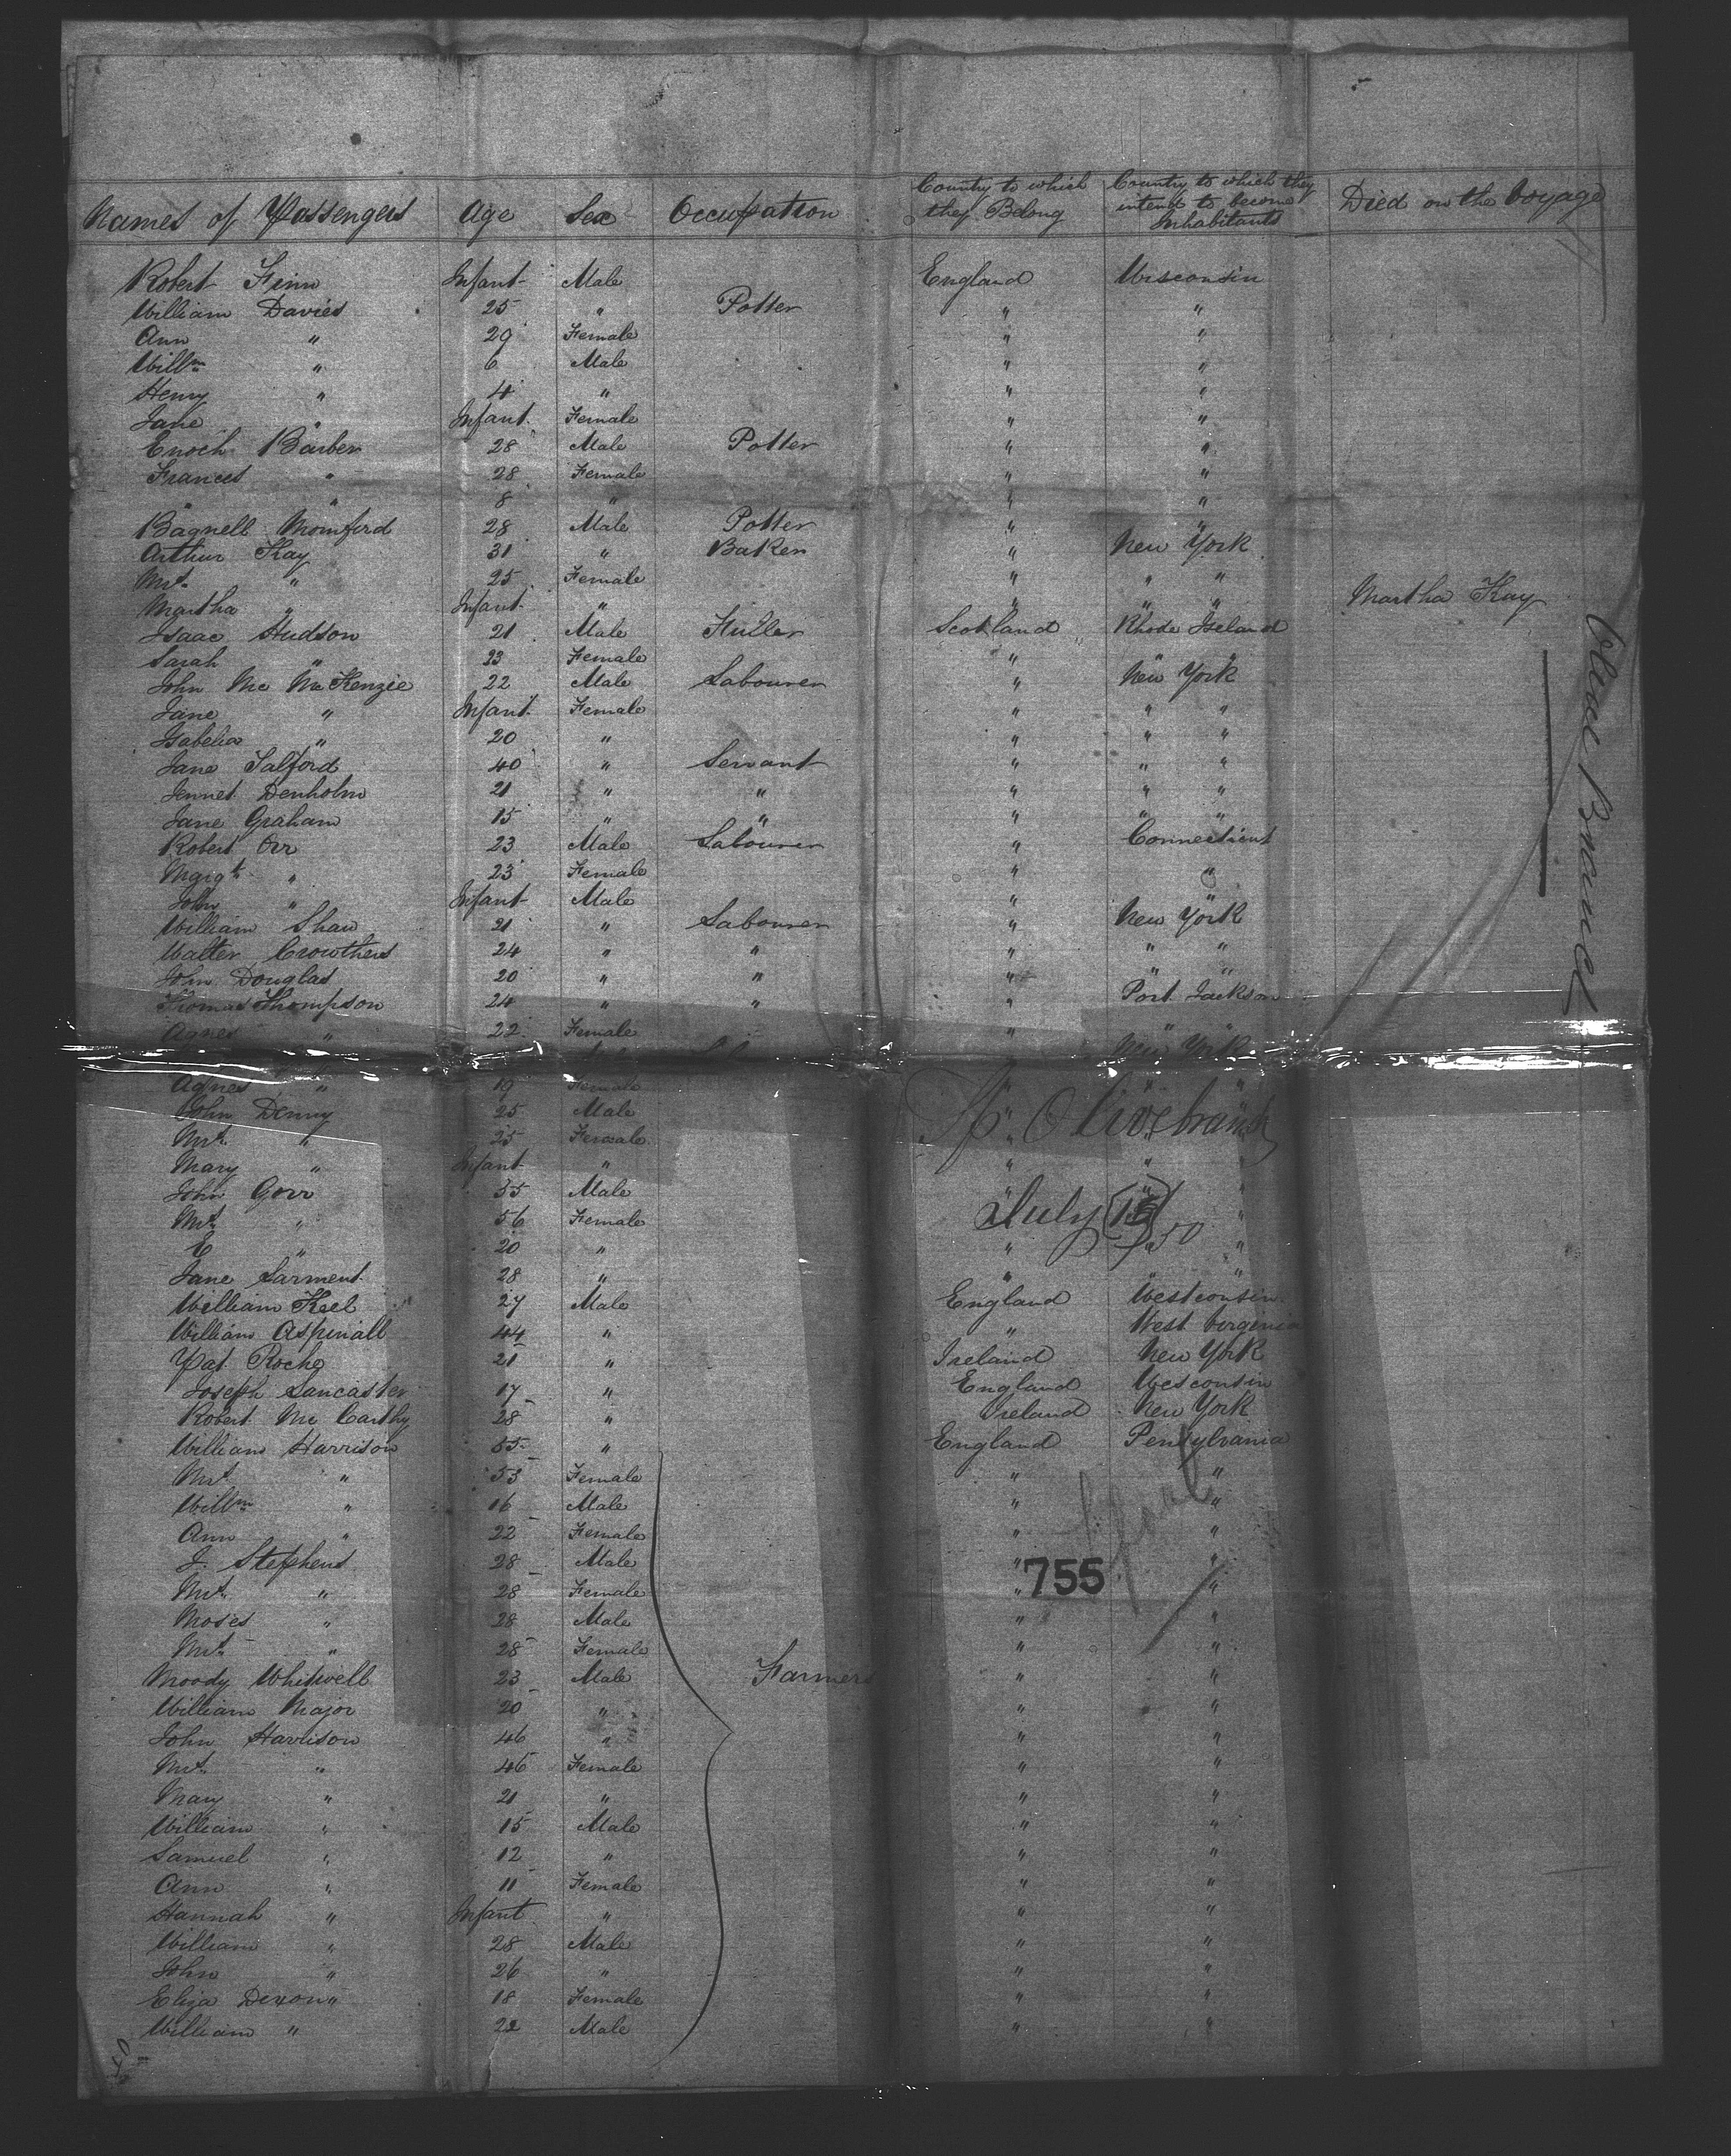 Names of Passengers Age Sex Occupation Country to which they Belong Country to which they intend to become Inhabitants Died on the Voyage
Robert Finn Infant Male England Wisconsin
William Davies 25 " Potter " "
Ann " 29 Female " "
Willm " 6 Male " "
Henry " 4 " " "
Jane " Infant Female " "
Enoch Barber 28 Male Potter " "
Frances " 28 Female " "
" " 8 " " "
Bagnell Momford 28 Male Potter " "
Arthur Kay 31 " Baker " New York
Mrs. " 25 Female " " "
Martha " Infant " " " " Martha Kay
Isaac Hudson 21 Male Scotland Rhode Island
Sarah " 23 Female " " "
John Mc McKenzie 22 Male Labourer " New York
Jane " Infant Female " " "
Isabella " 20 " " " "
Jane Salford 40 " Servant " " "
Jennet Denholm 21 " " " " "
Jane Graham 15 " " " " "
Robert Orr 23 Male Labourer " Connecticut
Margt " 23 Female " "
John " Infant Male " "
William Shaw 21 " Labourer " New York
Walter Crowthers 24 " " " " "
John Douglas 20 " " " " "
Thomas Thompson 24 " " " Port Jackson
Agnes " 22 Female " " "
New York
Agnes " 19 Female " " "
John Denny 25 Male " " "
Mrs. " 25 Female " " "
Mary " Infant " " " "
John Gorr 55 Male " " "
Mrs. " 56 Female " " "
E " 20 " " " "
Jane Sarment 28 " " " "
William Keel 27 Male England Westconsin
William Aspinall 44 " " West Virginia
Pat Roche 21 " Ireland New York
Joseph Lancaster 17 " England Wesconsin
Robert Mc Carthy 28 " Ireland New York
William Harrison 55 " England Pensylvania
Mrs. " 53 Female " "
Willm " 16 Male " "
Ann " 22 Female " "
J. Stephens 28 Male " "
Mrs. " 28 Female " "
Moses " 28 Male " "
Mrs. " 28 Female " "
Moody Whitwell 23 Male Farmers " "
William Major 20 " " "
John Harrison 46 " " "
Mrs. " 46 Female " "
Mary " 21 " " "
William " 15 Male " "
Samuel " 12 " " "
Ann " 11 Female " "
Hannah " Infant " " "
William " 28 Male " "
John " 26 " " "
Eliza Dexon " 18 Female " "
William " 22 Male " "
Olivebranch
July 15/50
755
Olive Branch